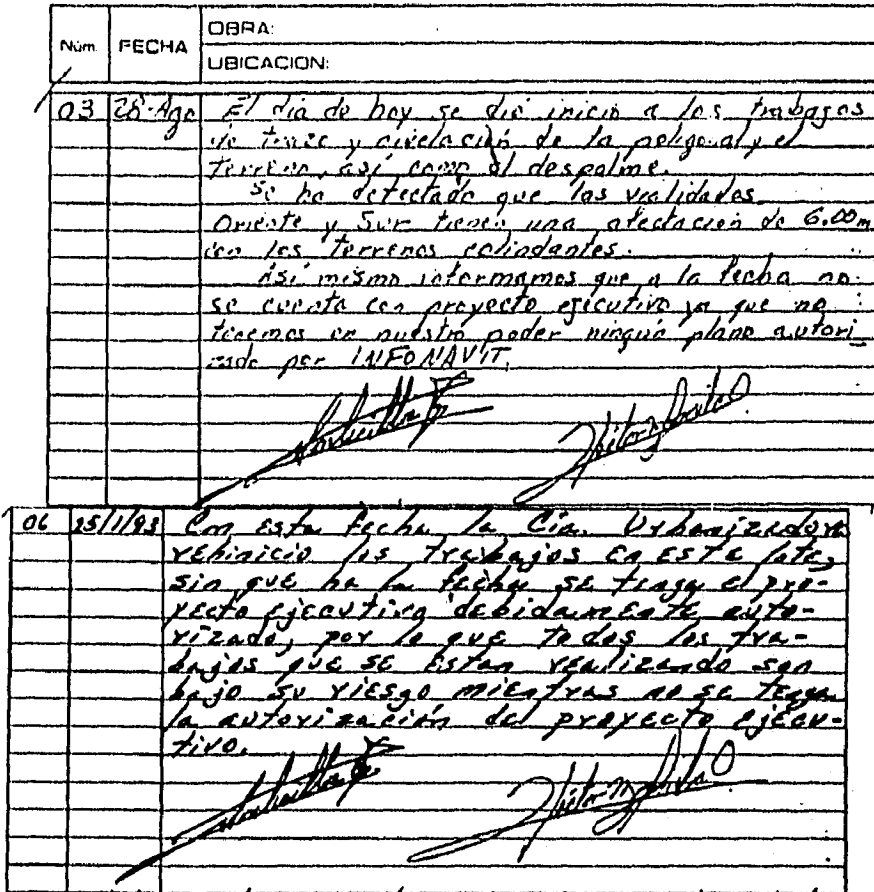 Núm. FECHA OBRA:
UBICACION:
03 28-Ago El día de hoy se dió inicio a los trabajos
de trazo y nivelación de la poligonal y el
terreno, así como al despalme.
Se ha detectado que las vialidades
Oriente y Sur tienen una afectación de 6.00m
con los terrenos colindantes.
Así mismo informamos que a la fecha no
se cuenta con proyecto ejecutivo ya que no
tenemos en nuestro poder ningún plano autori_
zado por INFONAVIT.
06 25/1/93 Con esta fecha la Cía. Urbanizadora
rehinicio los trabajos en este lote,
sin que ha la fecha se tenga el pro-
yecto ejecutivo debidamente auto-
rizado, por lo que todos los tra-
bajos que se estan realizando son
bajo su riesgo mientras no se tenga
la autorización del proyecto ejecu-
tivo.